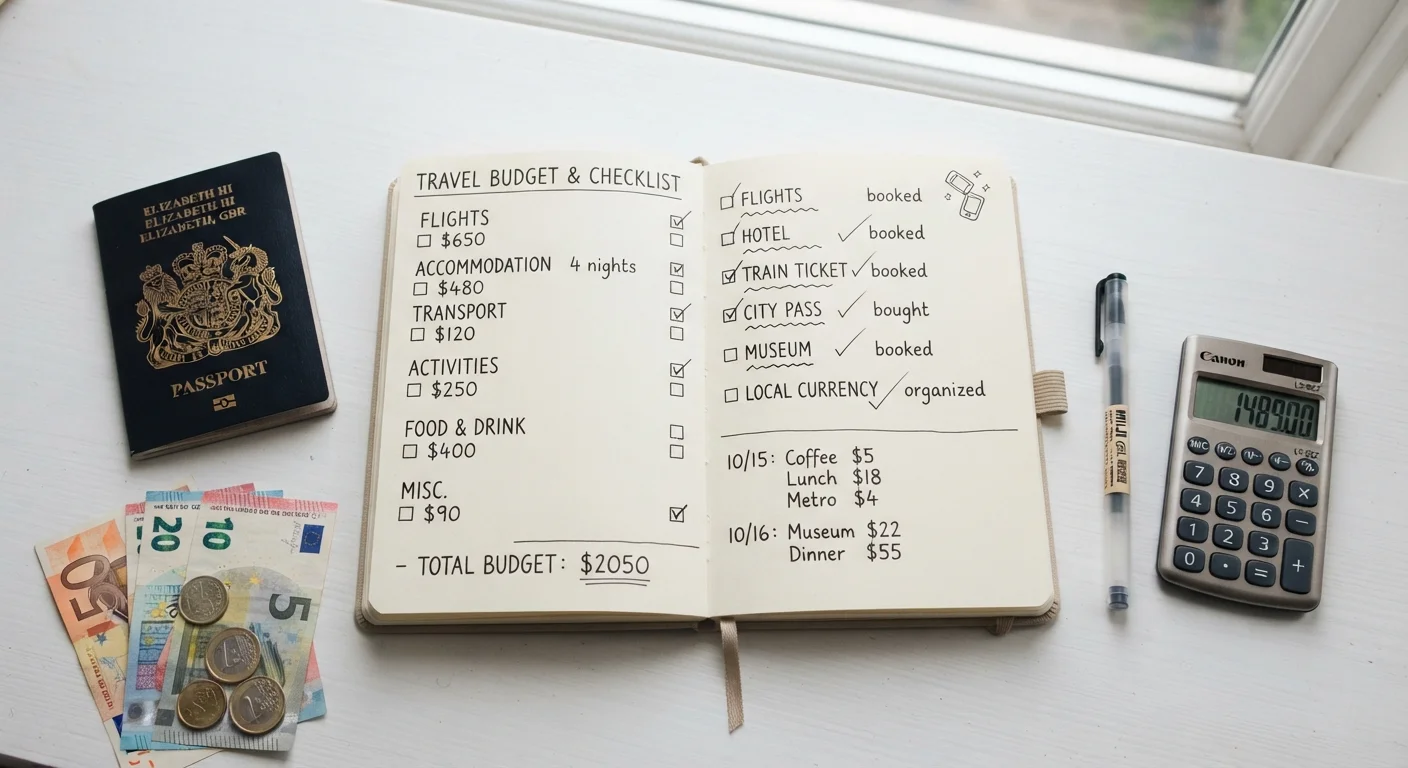 ELIZABETH
ELIZABETH
ELIZABETH, GBR
PASSPORT
50
20
10
5
TRAVEL BUDGET & CHECKLIST
FLIGHTS
$650
ACCOMMODATION 4 nights
$480
TRANSPORT
$120
ACTIVITIES
$250
FOOD & DRINK
$400
MISC.
$90
– TOTAL BUDGET: $2050
FLIGHTS booked
HOTEL booked
TRAIN TICKET booked
CITY PASS bought
MUSEUM booked
LOCAL CURRENCY organized
10/15: Coffee $5
Lunch $18
Metro $4
10/16: Museum $22
Dinner $55
Canon
1489.00
7 8 9 ×
4 5 6 −
1 2 3
0 . = +